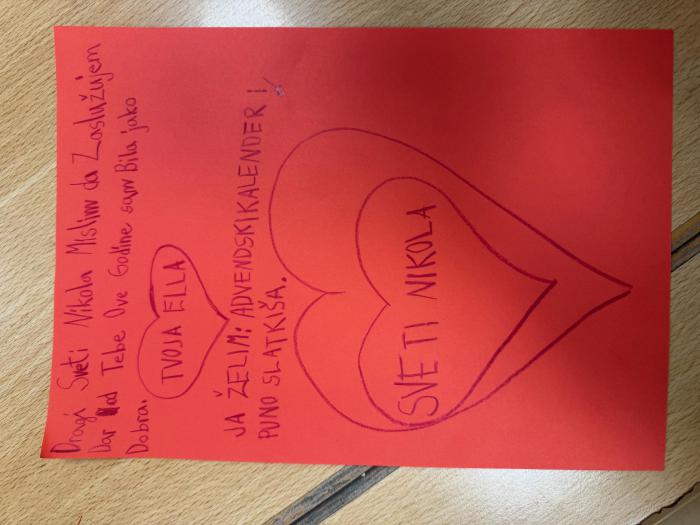 Dragi Sveti Nikola Mislim da Zaslužujem
Dar od Tebe Ove Godine sam Bila jako
Dobra.
TVOJA ELLA
JA ŽELIM: ADVENDSKIKALENDER!
PUNO SLATKIŠA.
SVETI NIKOLA